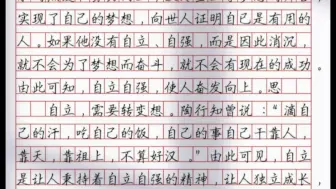 实现了自己的梦想，向世人证明自己是有用的
人。如果他没有自立、自强，而是因此消沉，
就不会为了梦想而奋斗，就不会有现在的成功。
由此可知，自立自强，使人奋发向上。思
自立，需要转变想。陶行知曾说：“滴自
己的汗，吃自己的饭，自己的事自己干靠人，
靠天，靠祖上，不算好汉。”由此可见，自立
是让人秉持着自立自强的精神，让人独立成长，